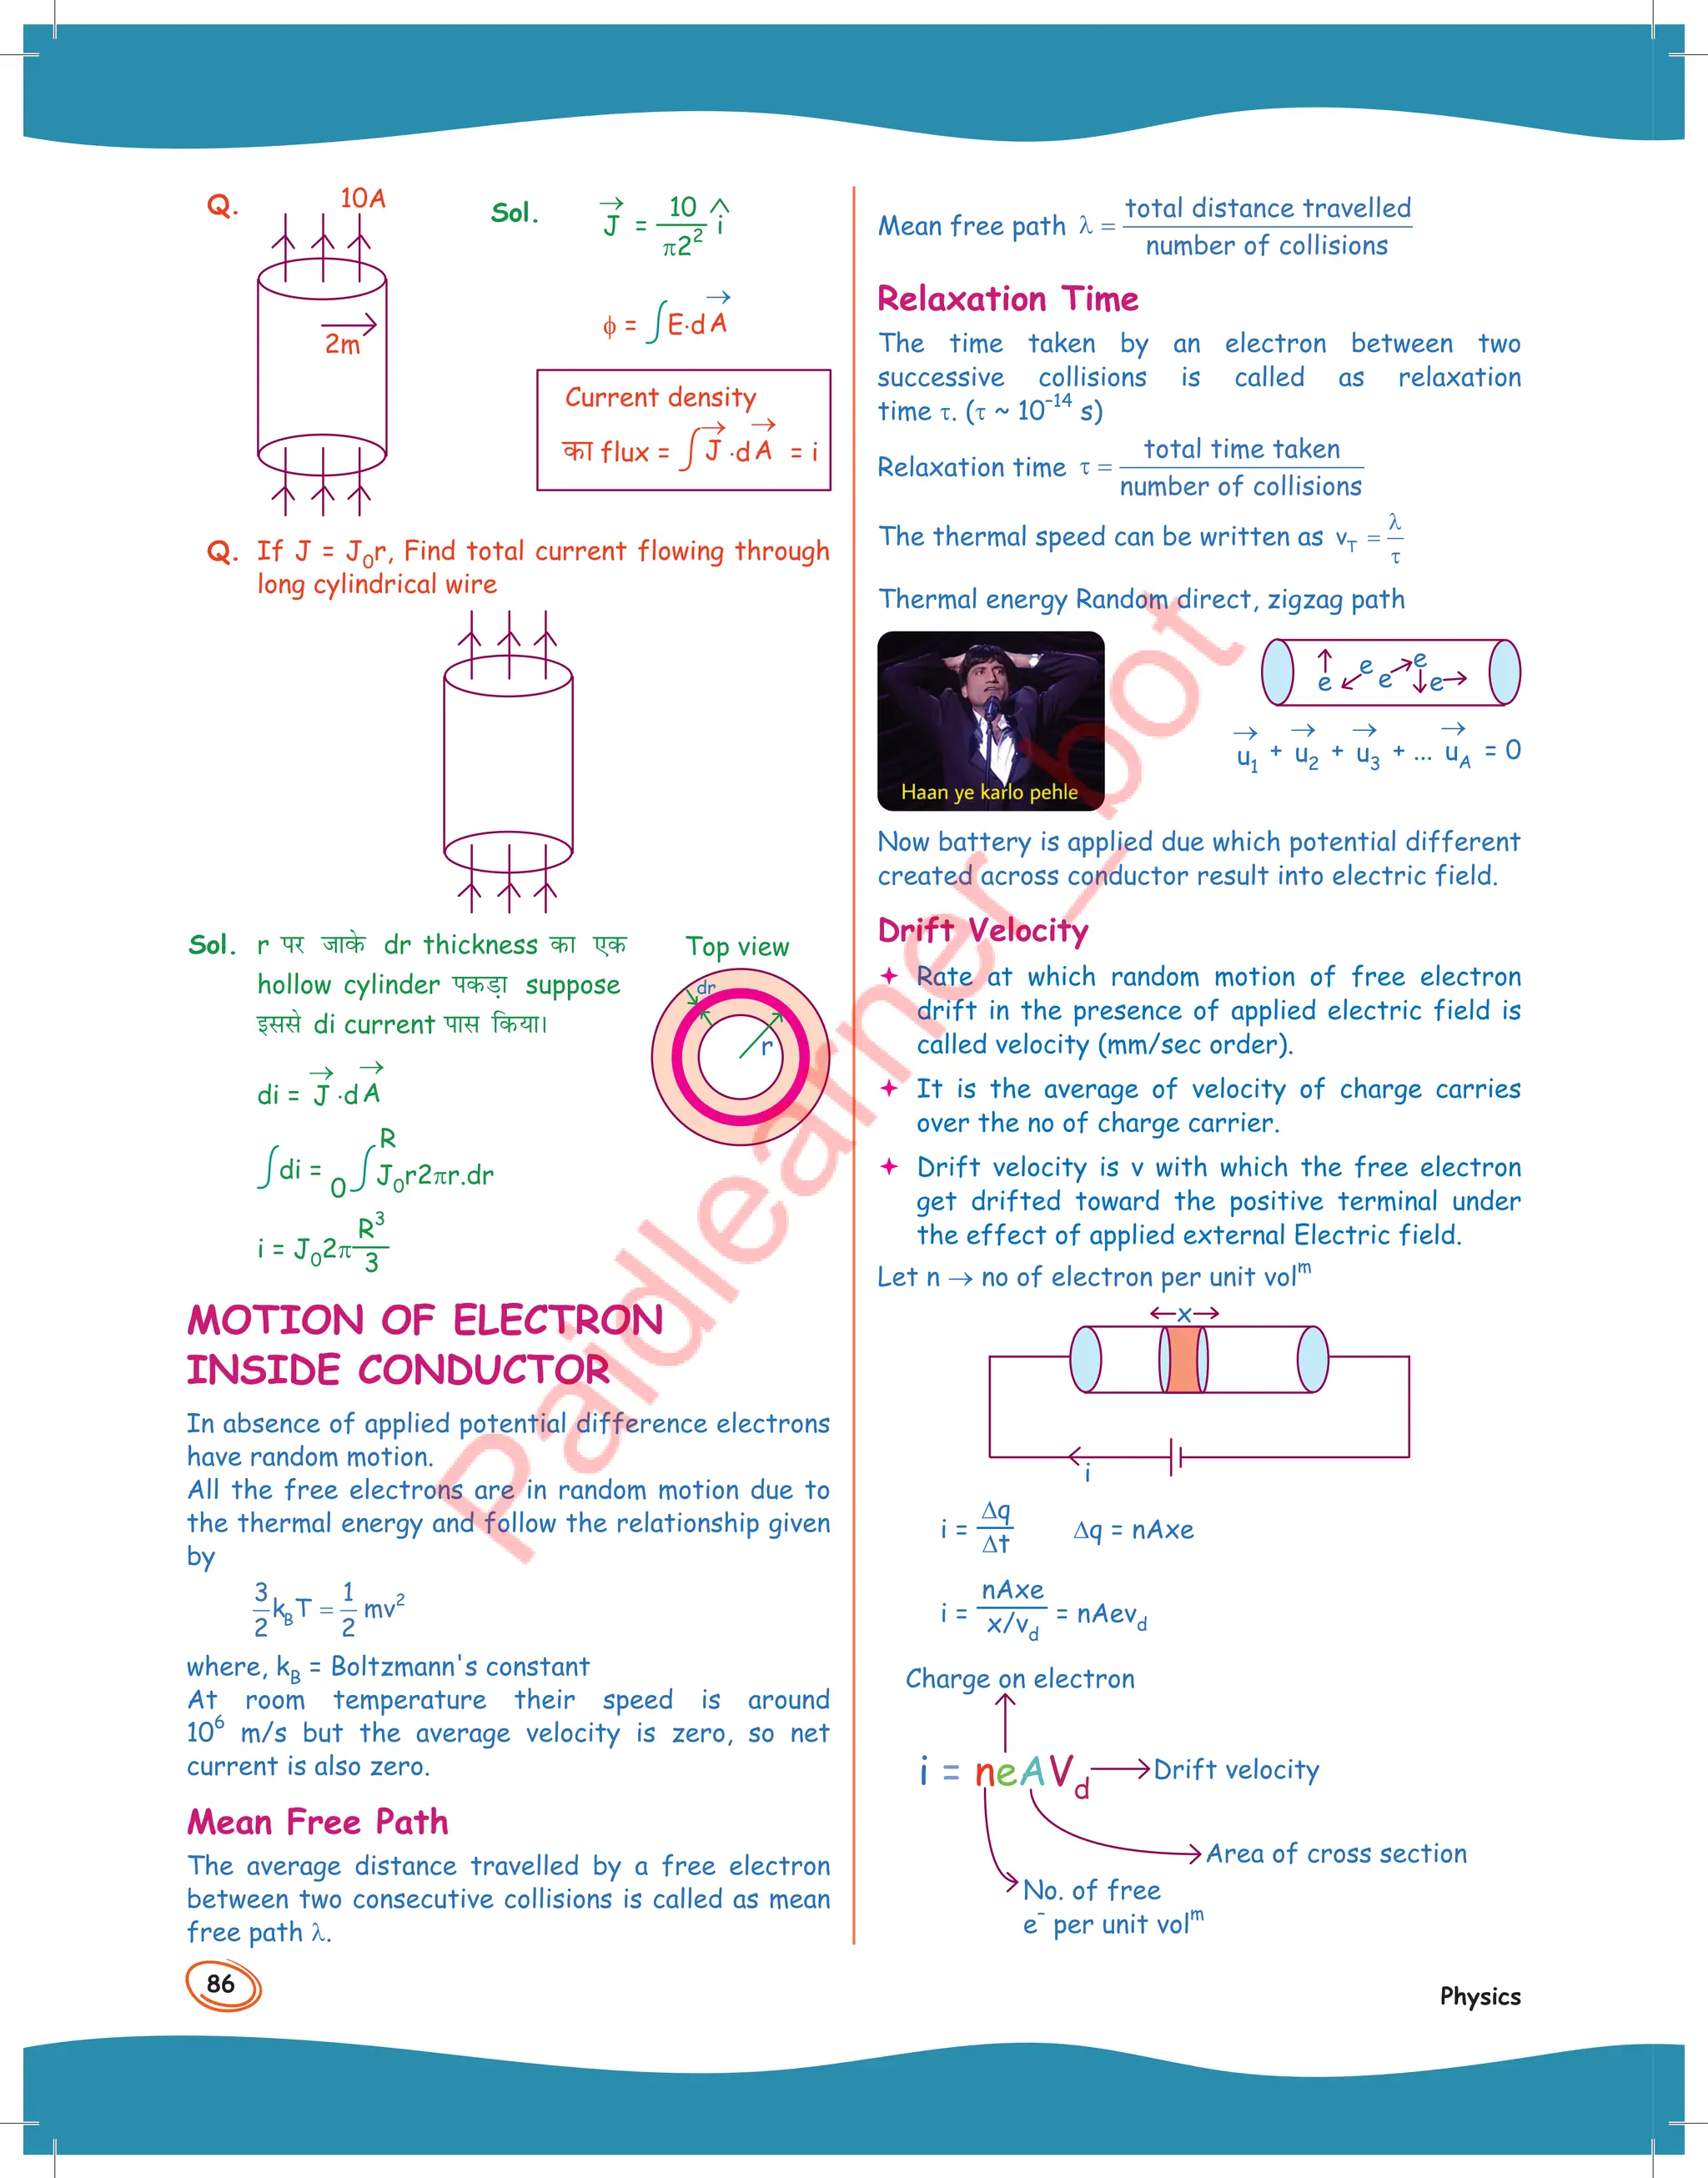 Q.
10A
2m
Sol. J⃗ = 10/π2² î
ϕ = ∫E·dA⃗
Current density
का flux = ∫J⃗·dA⃗ = i
Q. If J = J₀r, Find total current flowing through
long cylindrical wire
Sol. r पर जाके dr thickness का एक
hollow cylinder पकड़ा suppose
इससे di current पास किया।
Top view
dr
r
di = J⃗·dA⃗
∫di = ₀∫ᴿ J₀r2πr.dr
i = J₀2π R³/3
MOTION OF ELECTRON
INSIDE CONDUCTOR
In absence of applied potential difference electrons
have random motion.
All the free electrons are in random motion due to
the thermal energy and follow the relationship given
by
3/2 k_BT = 1/2 mv²
where, k_B = Boltzmann's constant
At room temperature their speed is around
10⁶ m/s but the average velocity is zero, so net
current is also zero.
Mean Free Path
The average distance travelled by a free electron
between two consecutive collisions is called as mean
free path λ.
Mean free path λ = total distance travelled/number of collisions
Relaxation Time
The time taken by an electron between two
successive collisions is called as relaxation
time τ. (τ ~ 10⁻¹⁴ s)
Relaxation time τ = total time taken/number of collisions
The thermal speed can be written as v_T = λ/τ
Thermal energy Random direct, zigzag path
Haan ye karlo pehle
e e e e e
u⃗₁ + u⃗₂ + u⃗₃ + ... u⃗_A = 0
Now battery is applied due which potential different
created across conductor result into electric field.
Drift Velocity
Rate at which random motion of free electron
drift in the presence of applied electric field is
called velocity (mm/sec order).
It is the average of velocity of charge carries
over the no of charge carrier.
Drift velocity is v with which the free electron
get drifted toward the positive terminal under
the effect of applied external Electric field.
Let n → no of electron per unit volᵐ
x
i
i = Δq/Δt Δq = nAxe
i = nAxe/(x/v_d) = nAev_d
Charge on electron
i = neAV_d → Drift velocity
Area of cross section
No. of free
e⁻ per unit volᵐ
86
Physics
Paidlearner_bot